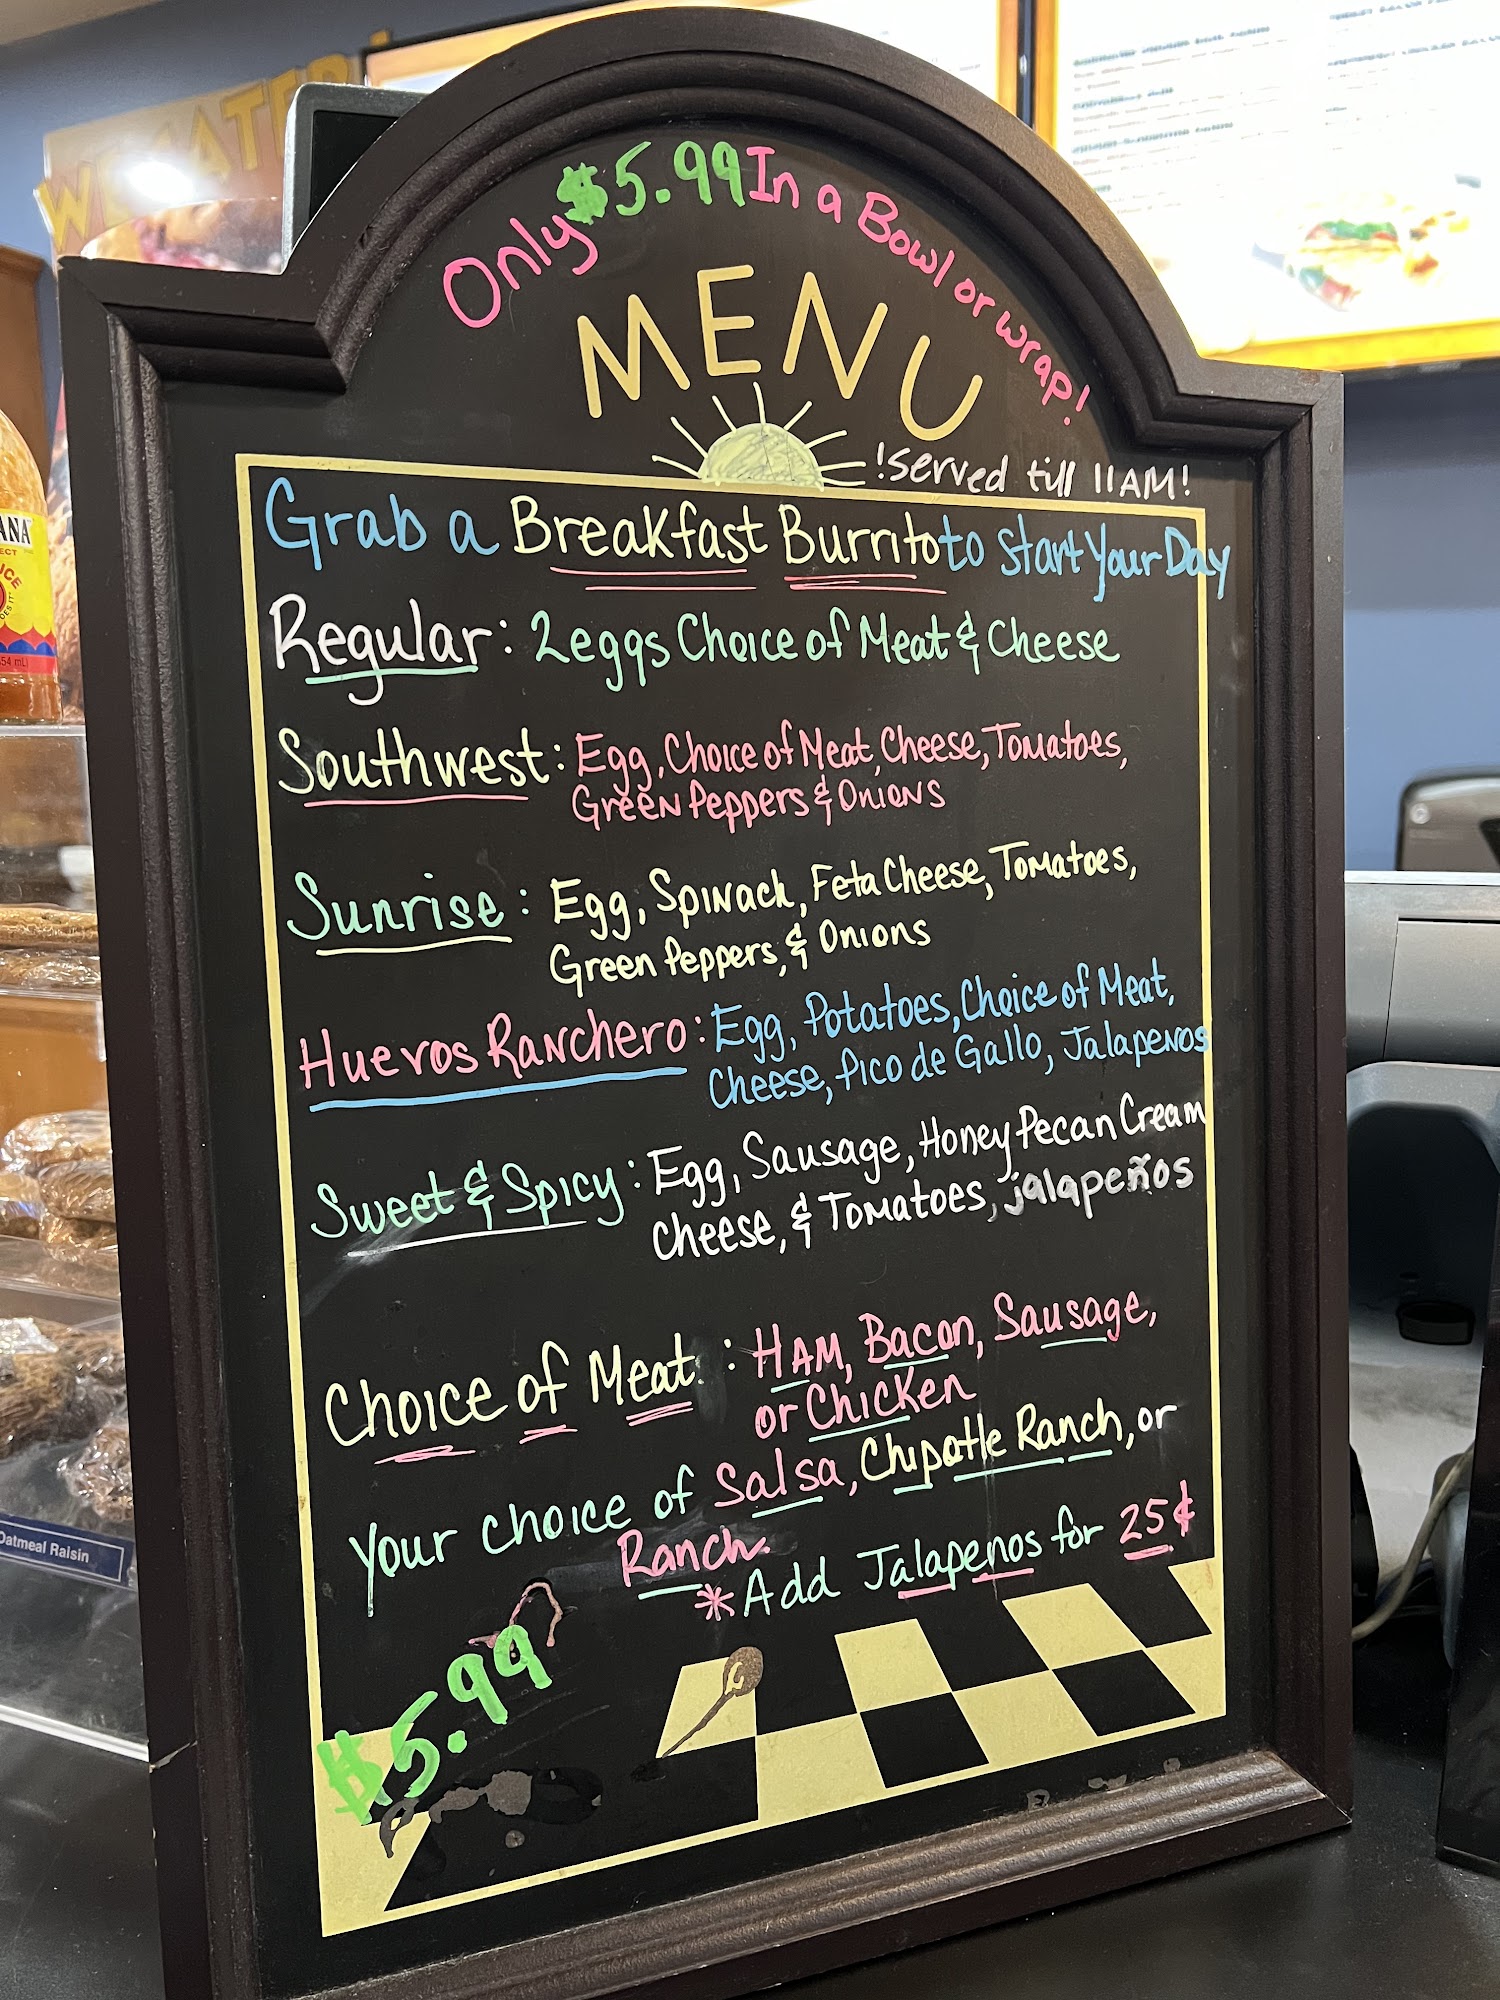 Only $5.99 In a Bowl or wrap!
MENU
!Served till 11AM!
Grab a Breakfast Burrito to Start Your Day
Regular: 2eggs Choice of Meat & Cheese
Southwest: Egg, Choice of Meat, Cheese, Tomatoes,
Green Peppers & Onions
Sunrise: Egg, Spinach, Feta Cheese, Tomatoes,
Green Peppers, & Onions
Huevos Ranchero: Egg, Potatoes, Choice of Meat,
Cheese, Pico de Gallo, Jalapenos
Sweet & Spicy: Egg, Sausage, Honey Pecan Cream
Cheese, & Tomatoes, jalapeños
Choice of Meat: Ham, Bacon, Sausage,
or Chicken
Your choice of Salsa, Chipotle Ranch, or
Ranch.
*Add Jalapenos for 25¢
$5.99
Oatmeal Raisin